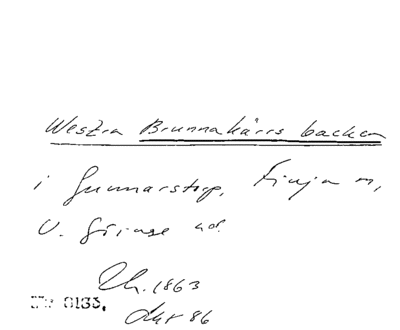 Westra Brunnakärrs backen
i Gunnarstorp, Finja sn,
V. Göinge hd.
Lh. 1863
0133.
Lur 86